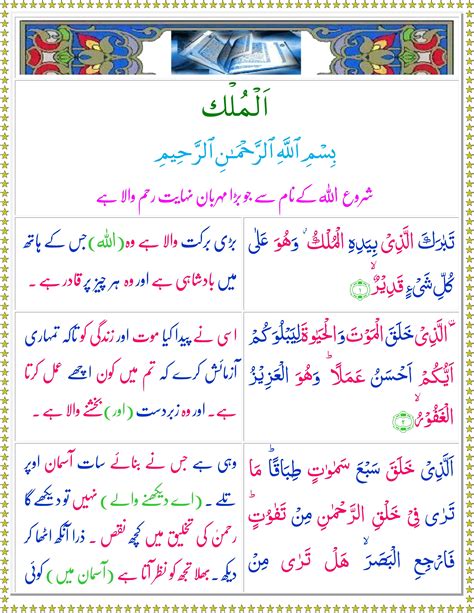 اَلْمُلْك
بِسْمِ اللَّهِ الرَّحْمٰنِ الرَّحِيمِ
شروع اللہ کے نام سے جو بڑا مہربان نہایت رحم والا ہے
تَبٰرَكَ الَّذِىْ بِيَدِهِ الْمُلْكُ ۙ وَهُوَ عَلٰى
كُلِّ شَىْءٍ قَدِيْرٌ ۙ ﴿۱﴾
بڑی برکت والا ہے وہ (اللہ) جس کے ہاتھ
میں بادشاہی ہے اور وہ ہر چیز پر قادر ہے ۔
اۨلَّذِىْ خَلَقَ الْمَوْتَ وَالْحَيٰوةَ لِيَبْلُوَكُمْ
اَيُّكُمْ اَحْسَنُ عَمَلًا ؕ وَهُوَ الْعَزِيْزُ
الْغَفُوْرُ ۙ ﴿۲﴾
اسی نے پیدا کیا موت اور زندگی کو تاکہ تمہاری
آزمائش کرے کہ تم میں کون اچھے عمل کرتا
ہے ۔ اور وہ زبردست (اور) بخشنے والا ہے ۔
الَّذِىْ خَلَقَ سَبْعَ سَمٰوٰتٍ طِبَاقًا ؕ مَا
تَرٰى فِىْ خَلْقِ الرَّحْمٰنِ مِنْ تَفٰوُتٍ ؕ
فَارْجِعِ الْبَصَرَ ۙ هَلْ تَرٰى مِنْ
وہی ہے جس نے بنائے سات آسمان اوپر
تلے ۔ (اے دیکھنے والے) نہیں تو دیکھے گا
رحمٰن کی تخلیق میں کچھ نقص ۔ ذرا آنکھ اٹھا کر
دیکھ ۔ بھلا تجھ کو نظر آتا ہے (آسمان میں) کوئی